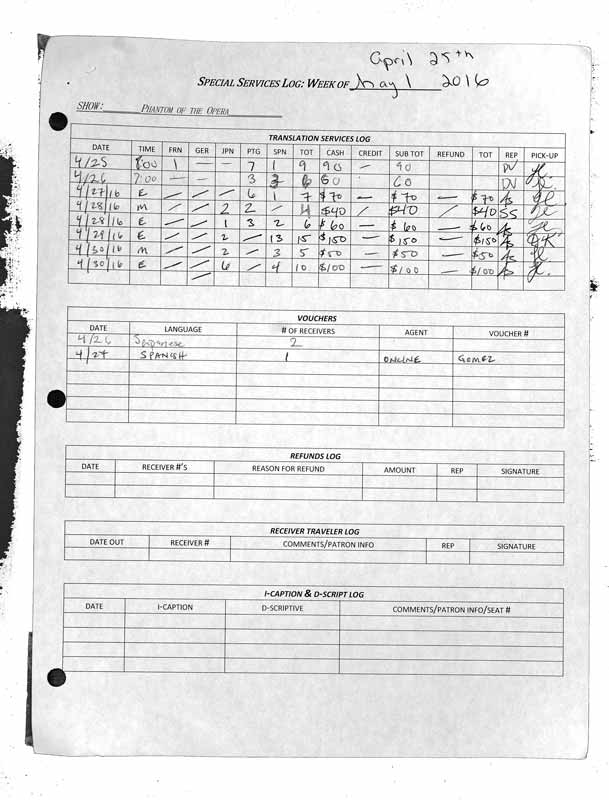 April 25th
SPECIAL SERVICES LOG: WEEK OF May 1 2016
SHOW: PHANTOM OF THE OPERA
TRANSLATION SERVICES LOG
DATE TIME FRN GER JPN PTG SPN TOT CASH CREDIT SUB TOT REFUND TOT REP PICK-UP
4/25 8:00 1 — — 7 1 9 90 — 90 DV
4/26 7:00 — — 3 3 6 60 60 DV
4/27/16 E / / / 6 1 7 $70 — $70 — $70 As
4/28/16 M / / 2 2 — 4 $40 / $40 / $40 SS
4/28/16 E / / 1 3 2 6 $60 — $60 — $60 As
4/29/16 E / / 2 / 13 15 $150 — $150 — $150 As DK
4/30/16 M / / 2 — 3 5 $50 — $50 — $50 As
4/30/16 E / / 6 / 4 10 $100 — $100 — $100 As
/
VOUCHERS
DATE LANGUAGE # OF RECEIVERS AGENT VOUCHER #
4/26 Japanese 2
4/27 SPANISH 1 ONLINE GOMEZ
REFUNDS LOG
DATE RECEIVER #'S REASON FOR REFUND AMOUNT REP SIGNATURE
RECEIVER TRAVELER LOG
DATE OUT RECEIVER # COMMENTS/PATRON INFO REP SIGNATURE
I-CAPTION & D-SCRIPT LOG
DATE I-CAPTION D-SCRIPTIVE COMMENTS/PATRON INFO/SEAT #